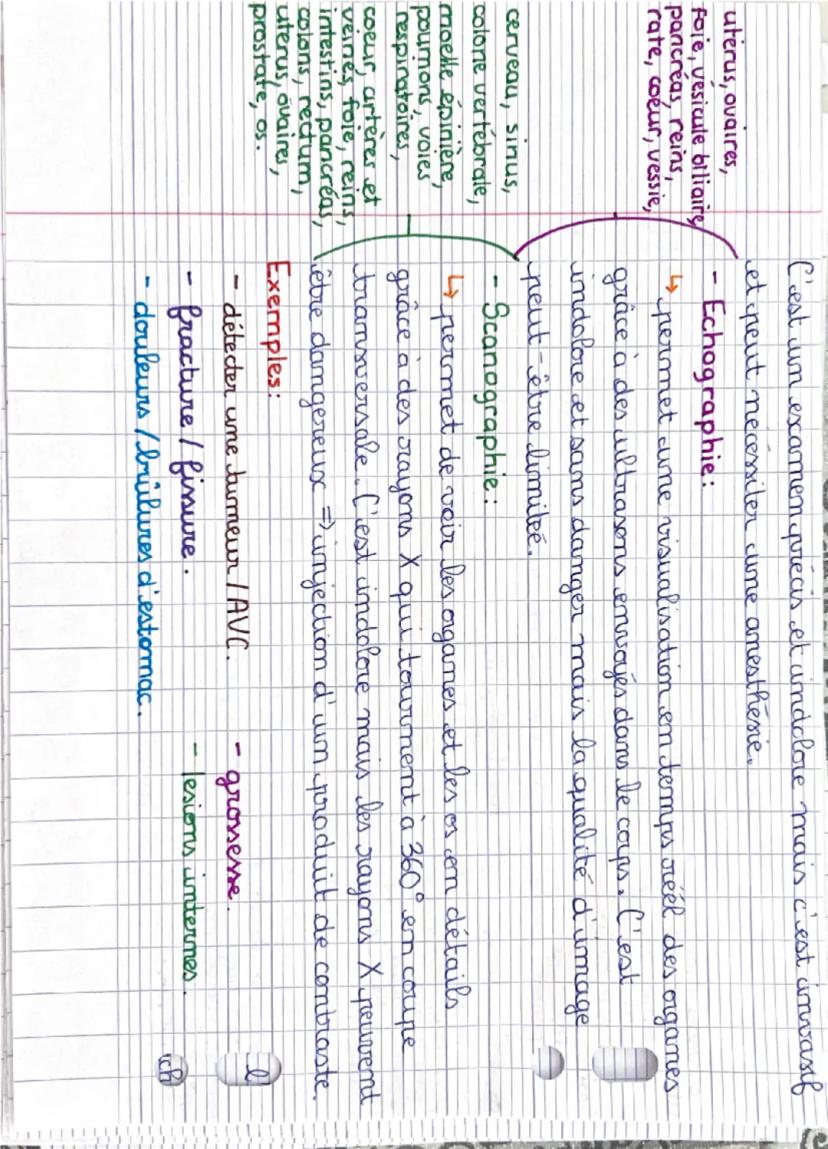 C'est un examen précis et indolore mais c'est invasif
et peut nécessiter une anesthésie.
- Echographie:
↳ permet une visualisation en temps réél des organes
grâce à des ultrasons envoyés dans le corps. C'est
indolore et sans danger mais la qualité d'image
peut-être limitée.
utérus, ovaires,
foie, vésicule biliaire,
pancréas, reins,
rate, coeur, vessie,
- Scanographie:
↳ permet de voir les organes et les os en détails
grâce à des rayons X qui tournent à 360° en coupe
transversale. C'est indolore mais les rayons X peuvent
être dangereux => injection d'un produit de contraste.
cerveau, sinus,
colone vertébrale,
moelle épinière,
poumons, voies
respiratoires,
coeur, artères et
veines, foie, reins,
intestins, pancréas,
colons, rectum,
utérus, ovaires,
prostate, os.
Exemples:
- détecter une tumeur / AVC. - grossesse.
- fracture / fissure. - lesions internes.
- douleurs / brûlures d'estomac.
l
ch